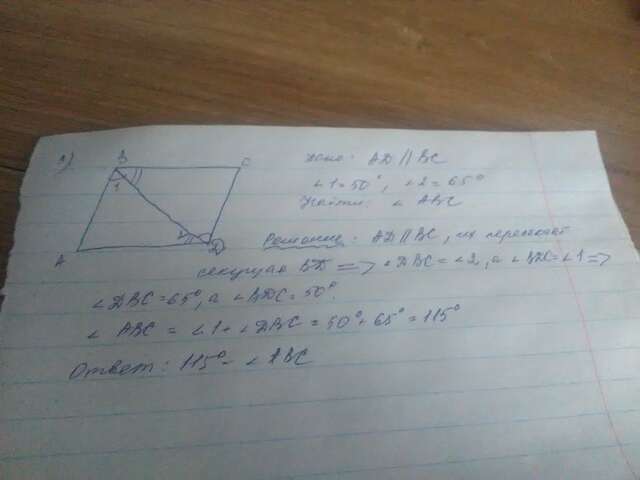 a)
B
C
1
2
A
D
Дано: AD || BC
∠1=50°, ∠2=65°
Найти: ∠ABC
Решение: AD || BC, их пересекает
секущая BD => ∠DBC=∠2, а ∠BDC=∠1 =>
∠DBC=65°, а ∠BDC=50°.
∠ABC = ∠1+∠DBC=50°+65°=115°
Ответ: 115°- ∠ABC